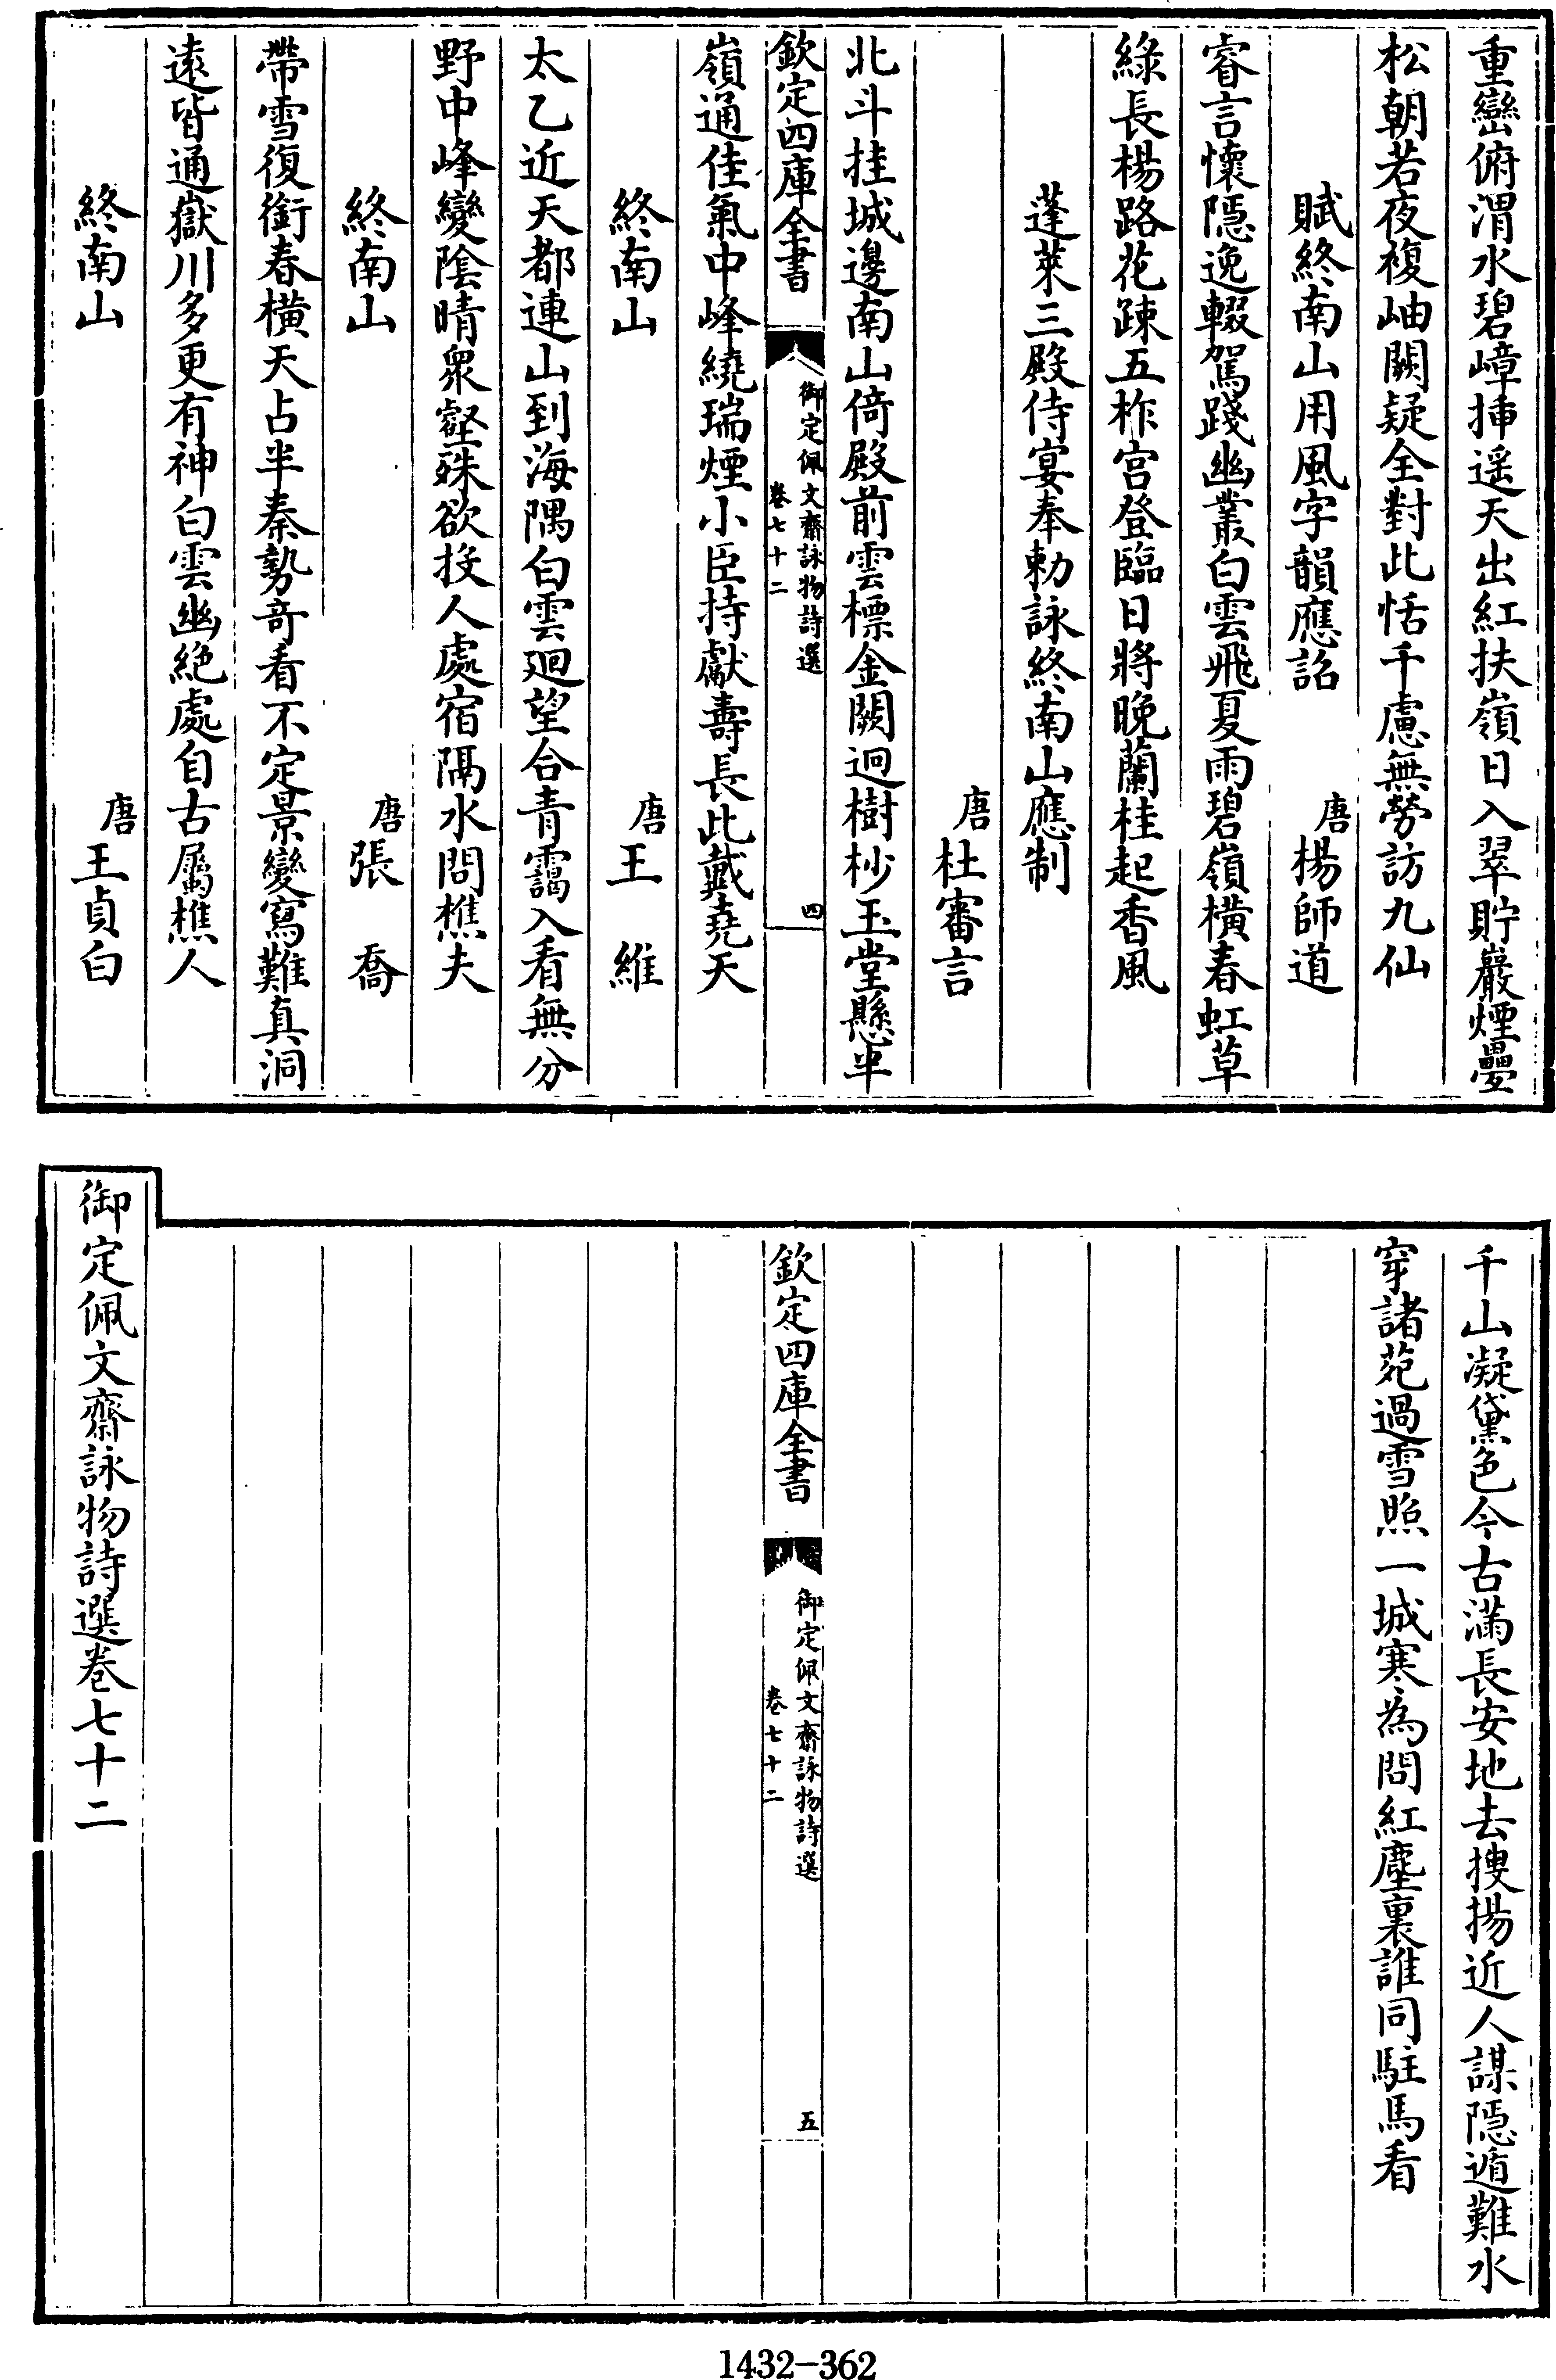 重巒俯渭水碧嶂揷遥天出紅扶嶺日入翠貯巖煙疊
松朝若夜複岫闕疑全對此恬千慮無勞訪九仙
賦終南山用風字韻應詔　唐楊師道
睿言懷隠逸輟駕踐幽叢白雲飛夏雨碧嶺橫春虹草
綠長楊路花疎五柞宫登臨日將晚蘭桂起香風
蓬萊三殿侍宴奉勅詠終南山應制
唐杜審言
北斗挂城邊南山倚殿前雲標金闕迥樹杪玉堂懸半
欽定四庫全書
御定佩文齋詠物詩選
卷七十二
四
嶺通佳氣中峰繞瑞煙小臣持獻壽長此戴堯天
終南山　唐王維
太乙近天都連山到海隅白雲廻望合青靄入看無分
野中峰變陰晴衆壑殊欲投人處宿隔水問樵夫
終南山　唐張喬
帶雪復銜春橫天占半秦勢奇看不定景變寫難真洞
遠皆通嶽川多更有神白雲幽絶處自古屬樵人
終南山　唐王貞白
千山凝黛色今古滿長安地去搜揚近人謀隠遁難水
穿諸苑過雪照一城寒為問紅塵裏誰同駐馬看
欽定四庫全書
御定佩文齋詠物詩選
卷七十二
五
御定佩文齋詠物詩選卷七十二
1432-362